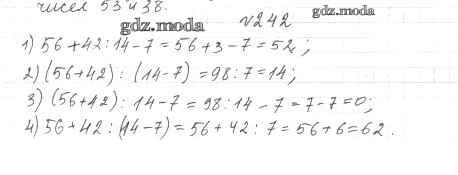 чисел 53 и 38.
gdz.moda
gdz.moda
№242
1) 56+42:14-7=56+3-7=52;
2) (56+42):(14-7)=98:7=14;
3) (56+42):14-7=98:14-7=7-7=0;
4) 56+42:(14-7)=56+42:7=56+6=62.